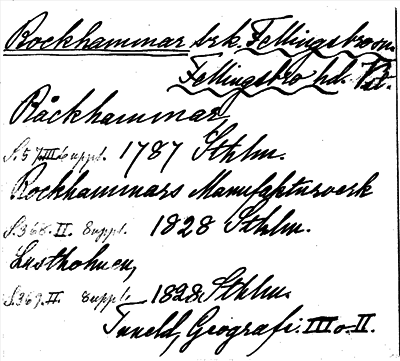 Rockhammar brk. Fellingsbro sn.
Fellingsbro hd. Ör.
Råckhammar,
S. 57. III. Suppl. 1787 Sthlm.
Rockhammars Manufakturverk
S. 368. II. Suppl. 1828 Sthlm.
Lustholmen,
S. 369. II. Suppl. 1828 Sthlm.
Tuneld, Geografi. III o. II.